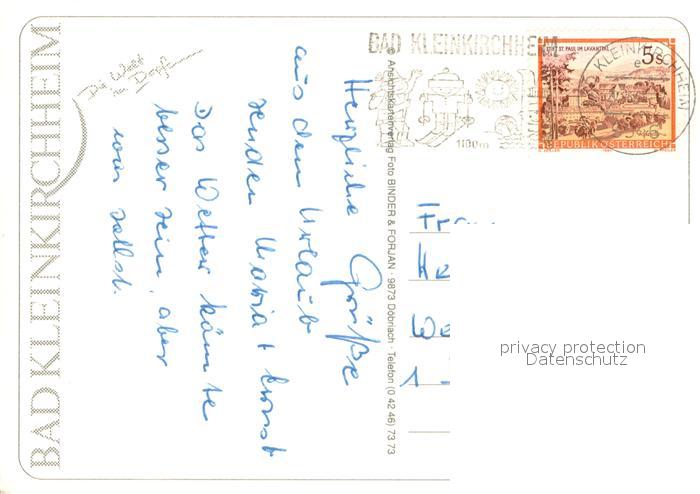 BAD KLEINKIRCHHEIM
Die Welt
im Dorf
BAD KLEINKIRCHHEIM
1100m
STIFT ST. PAUL IM LAVANTTAL
5s
REPUBLIK ÖSTERREICH
KLEINKIRCHHEIM
Herzliche Grüße
aus dem Urlaub
senden Maria + Ernst
Das Wetter könnte
besser sein, aber
was sollst.
Ansichtskartenverlag Foto BINDER & FORJAN · 9873 Döbriach · Telefon (0 42 46) 73 73
privacy protection
Datenschutz